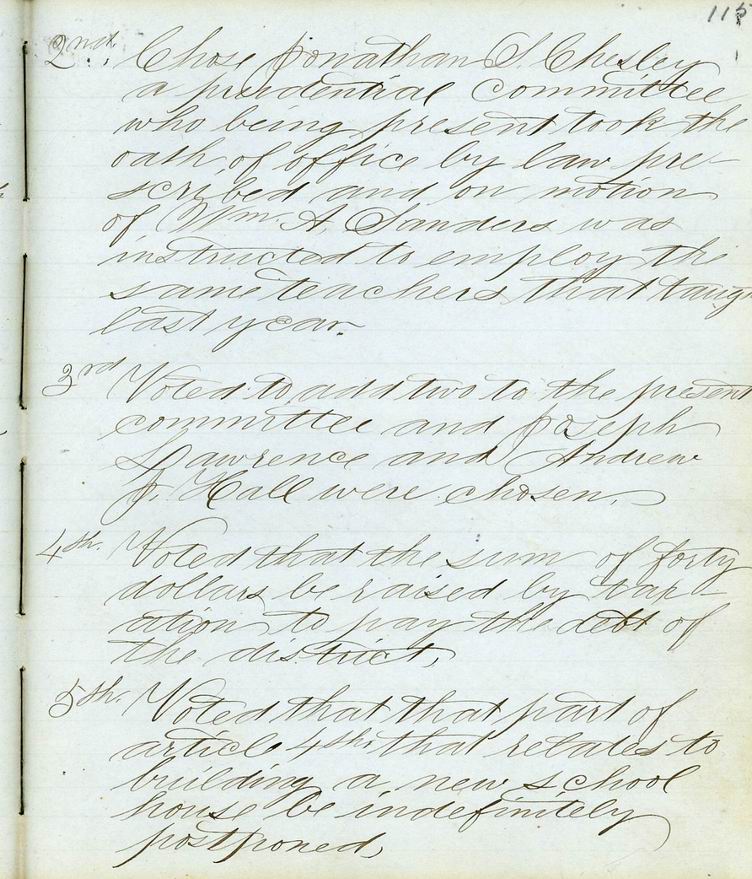 115
2nd. Chose Jonathan S. Chesley
a prudential committee
who being present took the
oath of office by law pre-
scribed and on motion
of Wm. A. Sanders was
instructed to employ the
same teachers that taug
last year.
3rd Voted to add two to the present
committee and Joseph
Lawrence and Andrew
J. Hall were chosen.
4th. Voted that the sum of forty
dollars be raised by tax-
ation to pay the debt of
the district.
5th. Voted that that part of
article 4th that relates to
building a new school
house be indefinitely
postponed,